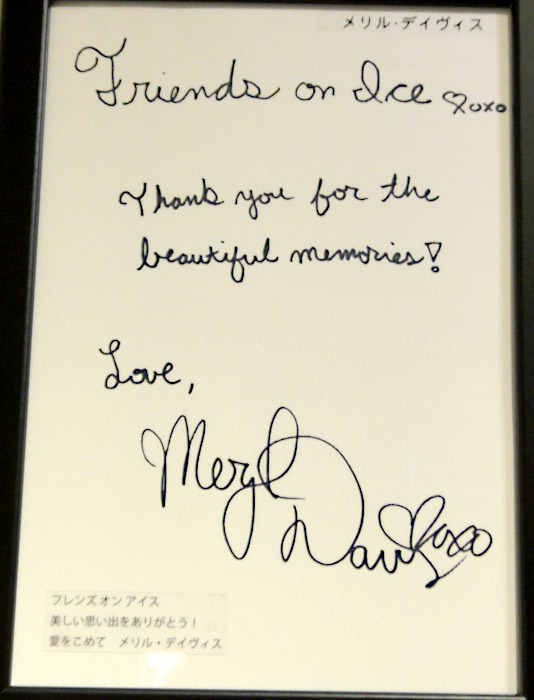 メリル・デイヴィス
Friends on Ice ♡xoxo
Thank you for the
beautiful memories!
Love,
Meryl
Davis ♡xoxo
フレンズ オン アイス
美しい思い出をありがとう！
愛をこめて　メリル・デイヴィス